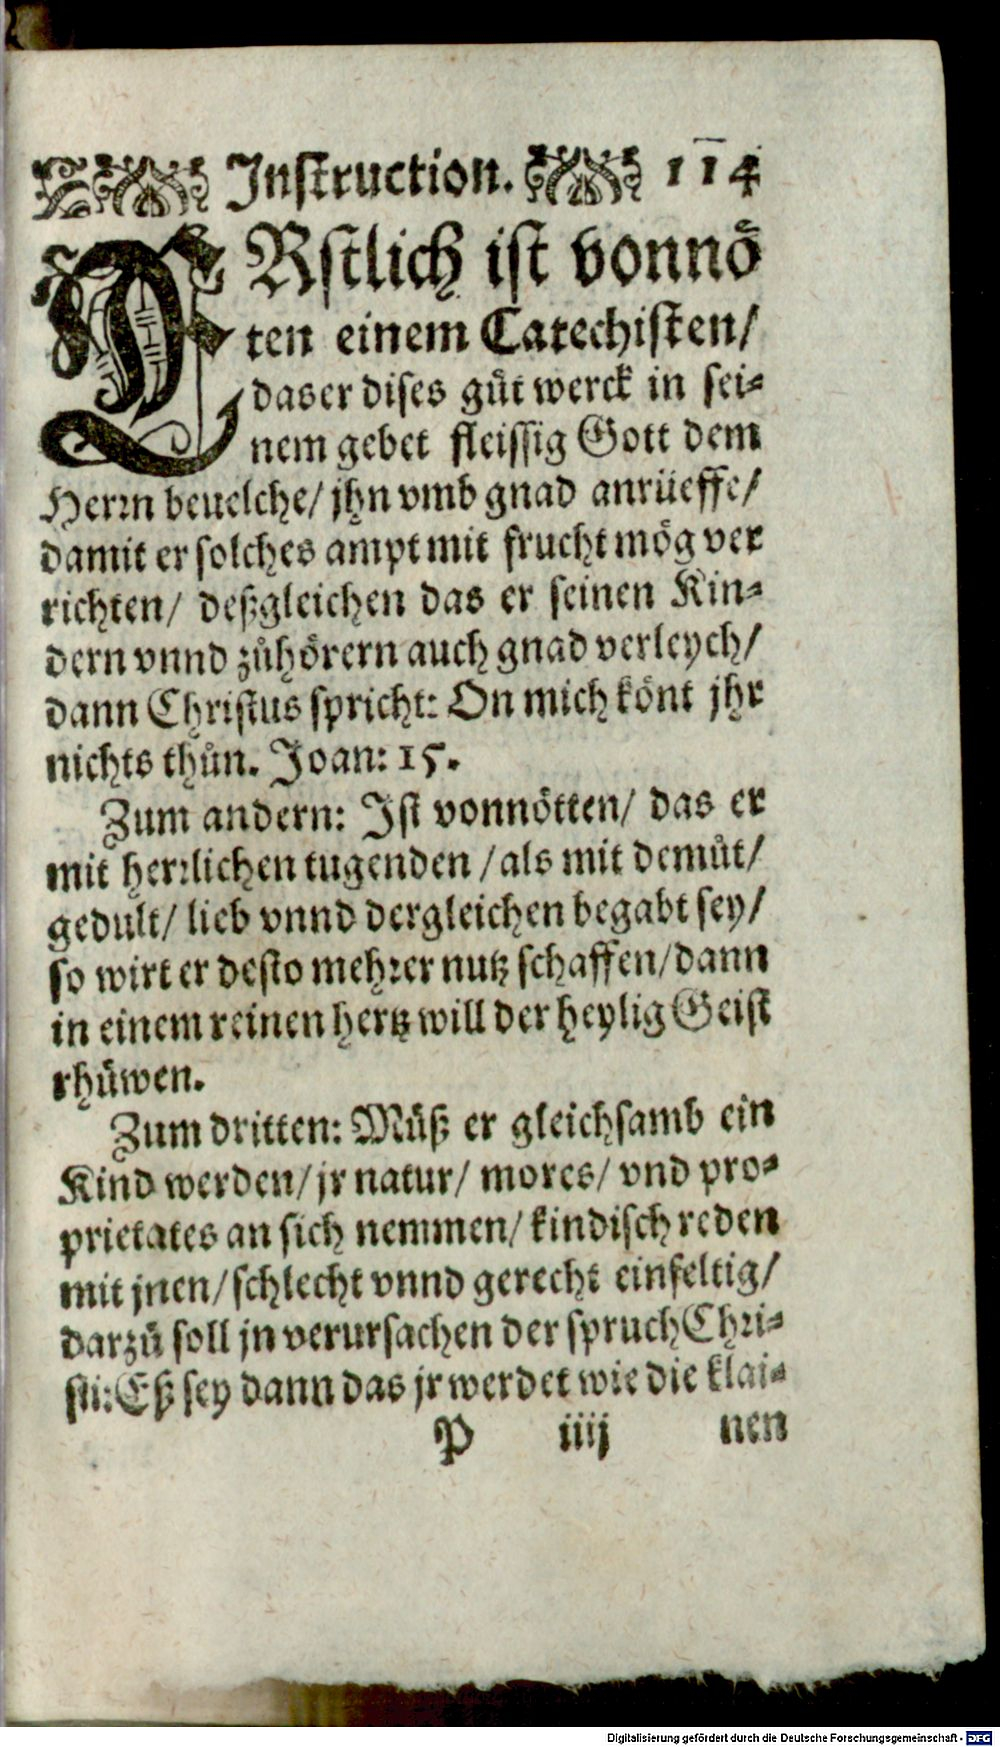 Instruction. 114
ERstlich ist vonnö
ten einem Catechisten/
das er dises gůt werck in sei-
nem gebet fleissig Gott dem
Herrn beuelche/ jhn vmb gnad anrüeffe/
damit er solches ampt mit frucht mög ver
richten/ deßgleichen das er seinen Kin-
dern vnnd zůhörern auch gnad verleych/
dann Christus spricht: On mich könt jhr
nichts thůn. Joan: 15.
Zum andern: Ist vonnötten/ das er
mit herrlichen tugenden / als mit demůt/
gedult/ lieb vnnd dergleichen begabt sey/
so wirt er desto mehrer nutz schaffen/ dann
in einem reinen hertz will der heylig Geist
rhůwen.
Zum dritten: Můß er gleichsamb ein
Kind werden/ jr natur/ mores/ vnd pro-
prietates an sich nemmen/ kindisch reden
mit jnen/ schlecht vnnd gerecht einfeltig/
darzů soll jn verursachen der spruch Chri-
sti: Eß sey dann das jr werdet wie die klai-
P iiij nen
Digitalisierung gefördert durch die Deutsche Forschungsgemeinschaft - DFG